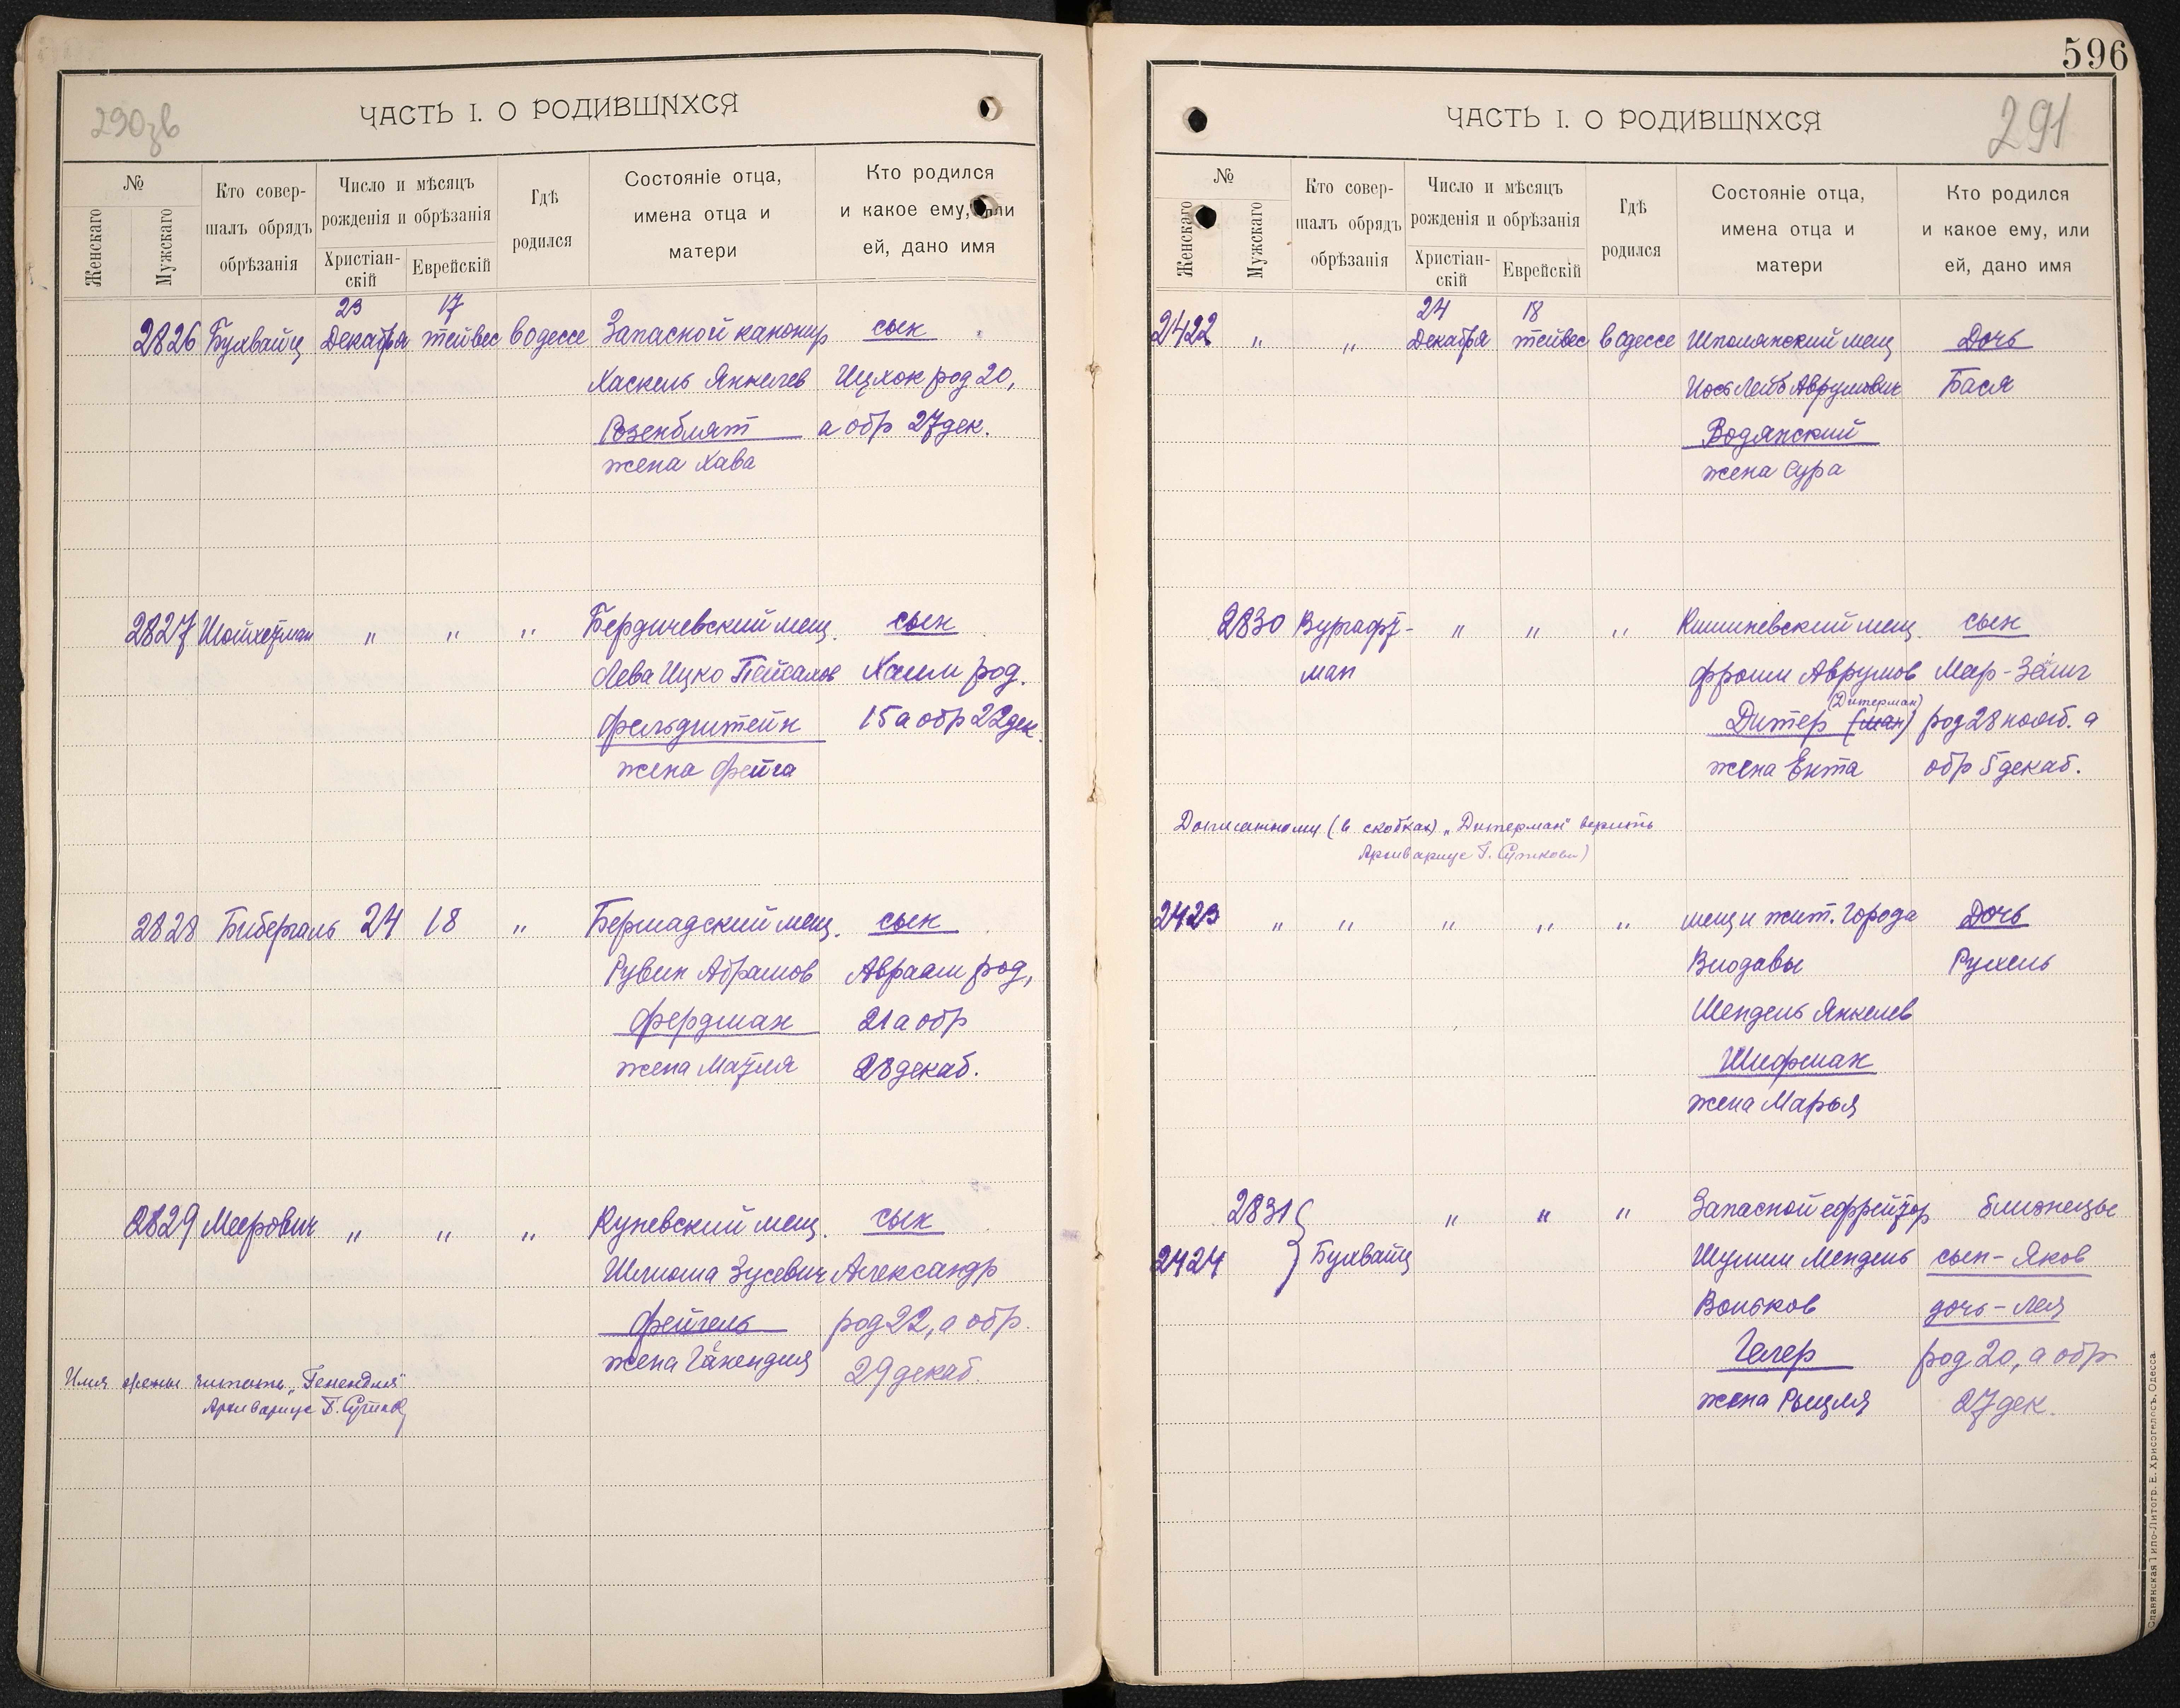 290зв
ЧАСТЬ I. О РОДИВШИХСЯ
№
Женскаго
Мужскаго
Кто совер-
шалъ обрядъ
обрѣзанія
Число и мѣсяцъ
рожденія и обрѣзанія
Христіан-
скій
Еврейскій
Гдѣ
родился
Состояніе отца,
имена отца и
матери
Кто родился
и какое ему, или
ей, дано имя
23 17
2826 Бухвайц Декабря тейвес в Одессе Запасной канонир сын
Хаскель Янкелев Ицхок род 20,
Розенблат а обр 27 дек.
жена Хава
2827 Шойхетман " " " Бердичевский мещ. сын
Лева Ицко Пейсахов Хаим род.
Фельдштейн 15 а обр 22 дек.
жена Фейга
2828 Бибергаль 24 18 " Бершадский мещ. сын
Рувин Абрамов Авраам род,
Фердман 21 а обр
жена Матля 28 декаб.
2829 Меерович " " " Куневский мещ. сын
Шлиома Зусевич Александр
Фейгель род 22, а обр.
жена Генендля 29 декаб.
Имя жены читать „Генендля"
Архивариус
596
291
ЧАСТЬ I. О РОДИВШИХСЯ
№
Женскаго
Мужскаго
Кто совер-
шалъ обрядъ
обрѣзанія
Число и мѣсяцъ
рожденія и обрѣзанія
Христіан-
скій
Еврейскій
Гдѣ
родился
Состояніе отца,
имена отца и
матери
Кто родился
и какое ему, или
ей, дано имя
24 18
2422 " " Декабря тейвес в Одессе Шполянский мещ Дочь
Иось Лейб Аврумович Бася
Водянский
жена Сура
2830 Вургафт- " " " Кишиневский мещ. сын
ман Фроим Аврумов Мар-Зелиг
(Дитерман)
Дитер (ман) род 28 нояб. а
жена Ента обр 5 декаб.
Дописанному (в скобках) „Дитерман" верить
Архивариус
2423 " " " " " мещ и жит. города Дочь
Влодавы Рухель
Мендель Янкелев
Шифман
жена Марья
2831 " " " Запасной ефрейтор близнецы
2424 Бухвайц Шулим Мендель сын - Яков
Вольков дочь - Лея
Гелер род 20, а обр
жена Рыцля 27 дек.
Славянская Типо-Литогр. Е. Хрисогелосъ, Одесса.